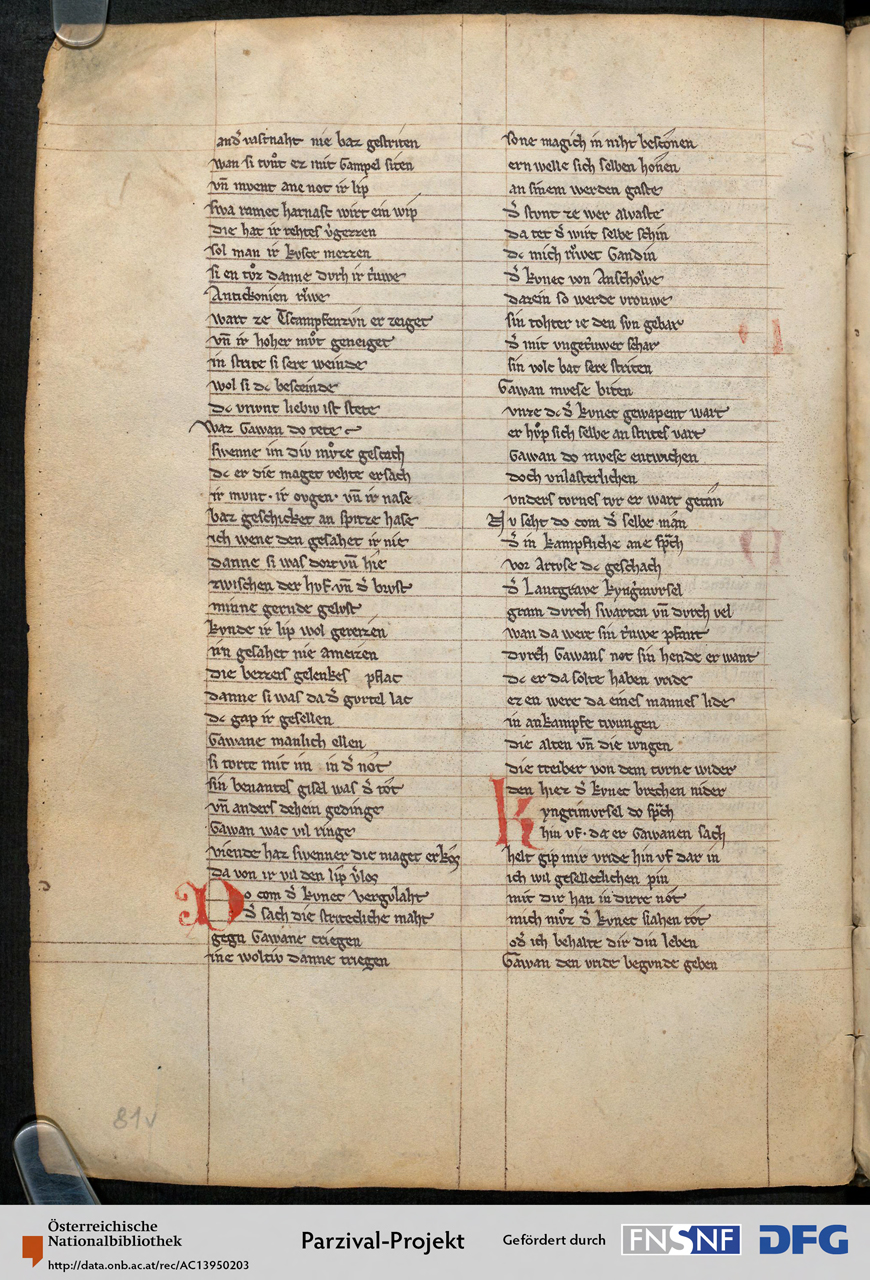 and͛ vastnaht nie baz gestriten
wan si tv̊nt ez mit Gampel siten
vn̄ mvent ane not ir lip
swa ramet harnast wirt ein wip
die hat ir rehtes v͛gezzen
sol man ir kvste mezzen
si en tv̊z danne dvrh ir trỉwe
Antickonien rv̊we
wart ze Tscampfenzvn er zeiget
vn̄ ir hoher mv̊t geneiget
in strite si sere weinde
wol si dc besceinde
dc vrivnt liebiv ist stete
Waz Gawan do tete
swenne im div mv̊ze gescach
dc er die maget rehte ersach
ir mvnt · ir ovgen · vn̄ ir nase
baz geschicket an spitze hase
ich wene den gesahet ir nie
danne si was dort vn̄ hie
zwischen der hvf · vn̄ d͛ brvst
minne gernde gelvst
kvnde ir lip wol gereizen
irn gesahet nie ameizen
die bezzers gelenkes pflac
danne si was da d͛ gvrtel lac
dc gap ir gesellen
Gawane manlich ellen
si torte mit im in d͛ not
sin benantes gisel was d͛ tot
vn̄ anders dehein gedinge
Gawan wac vil ringe
viende haz swenner die maget erkos
da von ir vil den lip v͛los
Do com d͛ kvnec Vergvlaht
d͛ sach die stritecliche maht
gegn Gawane criegen
ine woltiv danne triegen
sone magich in niht beschonen
ern welle sich selben honen
an sinem werden gaste
d͛ stvnt ze wer alvaste
da tet d͛ wirt selbe schin
dc mich rv̊wet Gandin
d͛ kvnec von Anschowe
dazein so werde vrouwe
sin tohter ie den svn gebar
d͛ mit vngetrỉwer schar
sin volc bat sere striten
Gawan mvese biten
vnze dc d͛ kvnec gewapent wart
er hv̊p sich selbe an strites vart
Gawan do mvese entwichen
doch vnlasterlichen
vnders tornes tvr er wart getan
Nv seht do com d͛ selbe man
d͛ in kampfliche ane sp͛ch
vor Artvse dc geschach
d͛ Lantgrave kyngrimvrsel
gram dvrch swarten vn̄ dvrch vel
wan da were sin trỉwe pfant
dvrch Gawans not sin hende er want
dc er da solte haben vride
ez en were da eines mannes lide
in ankampfe twungen
die alten vn̄ die ivngen
die treiber von dem tvrne wider
den hiez d͛ kvnec brechen nider
kyngrimvrsel do sp͛ch
hin vf · da er Gawanen sach
helt gip mir vride hin vf dar in
ich wil geselleclichen pin
mit dir han in dirre not
mich mv̊z d͛ kvnec slahen tot
od͛ ich behalte dir din leben
Gawan den vride begvnde geben
81v
Österreichische
Nationalbibliothek
http://data.onb.ac.at/rec/AC13950203
Parzival-Projekt
Gefördert durch
FNSNF
DFG